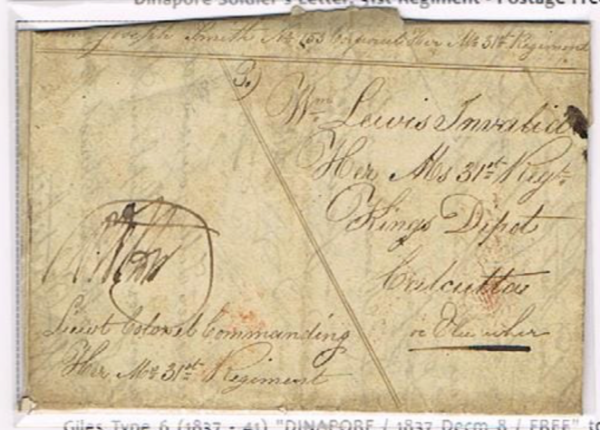 Dinapore Soldier's Letter, 31st Regiment - Postage Free
From Joseph Smith No 153 Corporal Her Ms 31st Regiment
3.
Wm. Lewis Invalid
Her Ms 31st Regt.
Kings Depot
Calcutta
or Elsewher
Lieut Colonel Commanding
Her Ms 31st Regiment
Giles Type 6 (1837 - 41) "DINAPORE / 1837 Decm 8 / FREE" to